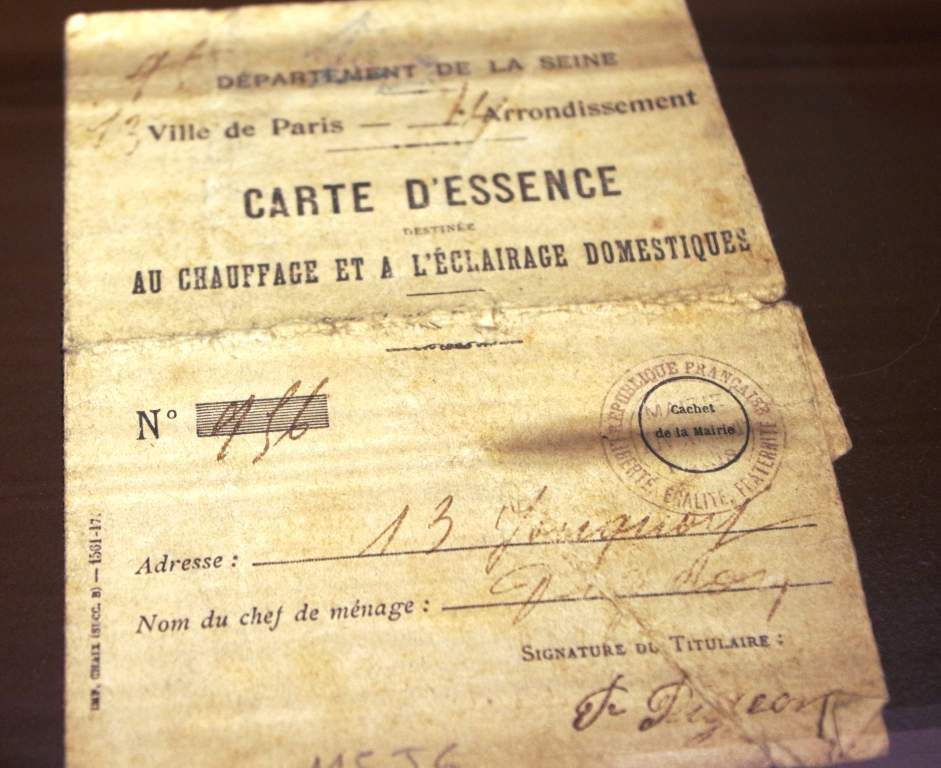 DÉPARTEMENT DE LA SEINE
13 Ville de Paris — 14 Arrondissement
CARTE D'ESSENCE
DESTINÉE
AU CHAUFFAGE ET A L'ÉCLAIRAGE DOMESTIQUES
N° 956
RÉPUBLIQUE FRANÇAISE
LIBERTÉ, EGALITÉ, FRATERNITÉ
Cachet
de la Mairie
Adresse : 13
Nom du chef de ménage :
SIGNATURE DU TITULAIRE :
IMP. CHAIX (SUCC. B) — 1561-17.